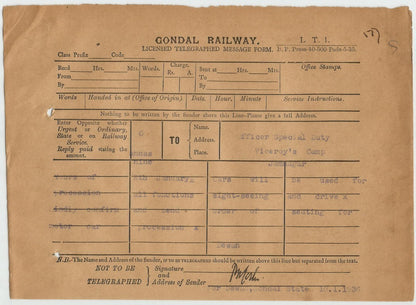 GONDAL RAILWAY.
LICENSED TELEGRAPHED MESSAGE FORM.
I. T. 1.
Class Prefix Code
Recd Hrs. Mts.
From
By
Words.
Charge.
Rs. A.
Sent at Hrs. Mts.
To
By
Office Stamps.
Words Handed in at (Office of Origin) Date, Hour, Minute Service Instructions.
Nothing to be written by the Sender above this Line-Please give a full Address.
Enter Opposite whether
Urgent or Ordinary,
State or on Railway
Service.
Reply paid stating the
amount.
TO
Name.
Address.
Place.
Officer Special Duty
Viceroy's Camp
Jamnagar
Yours of 8th January Cars will be used for
procession all functions sight-seeing and drive x
kindly confirm and send order of seating for
motor car procession x
Dewan
N.B.-The Name and Address of the Sender, if to be TELEGRAPHED should be written above this line but separated from the text.
NOT TO BE
TELEGRAPHED
Signature
and
Address of Sender
For Dewan, Gondal State.